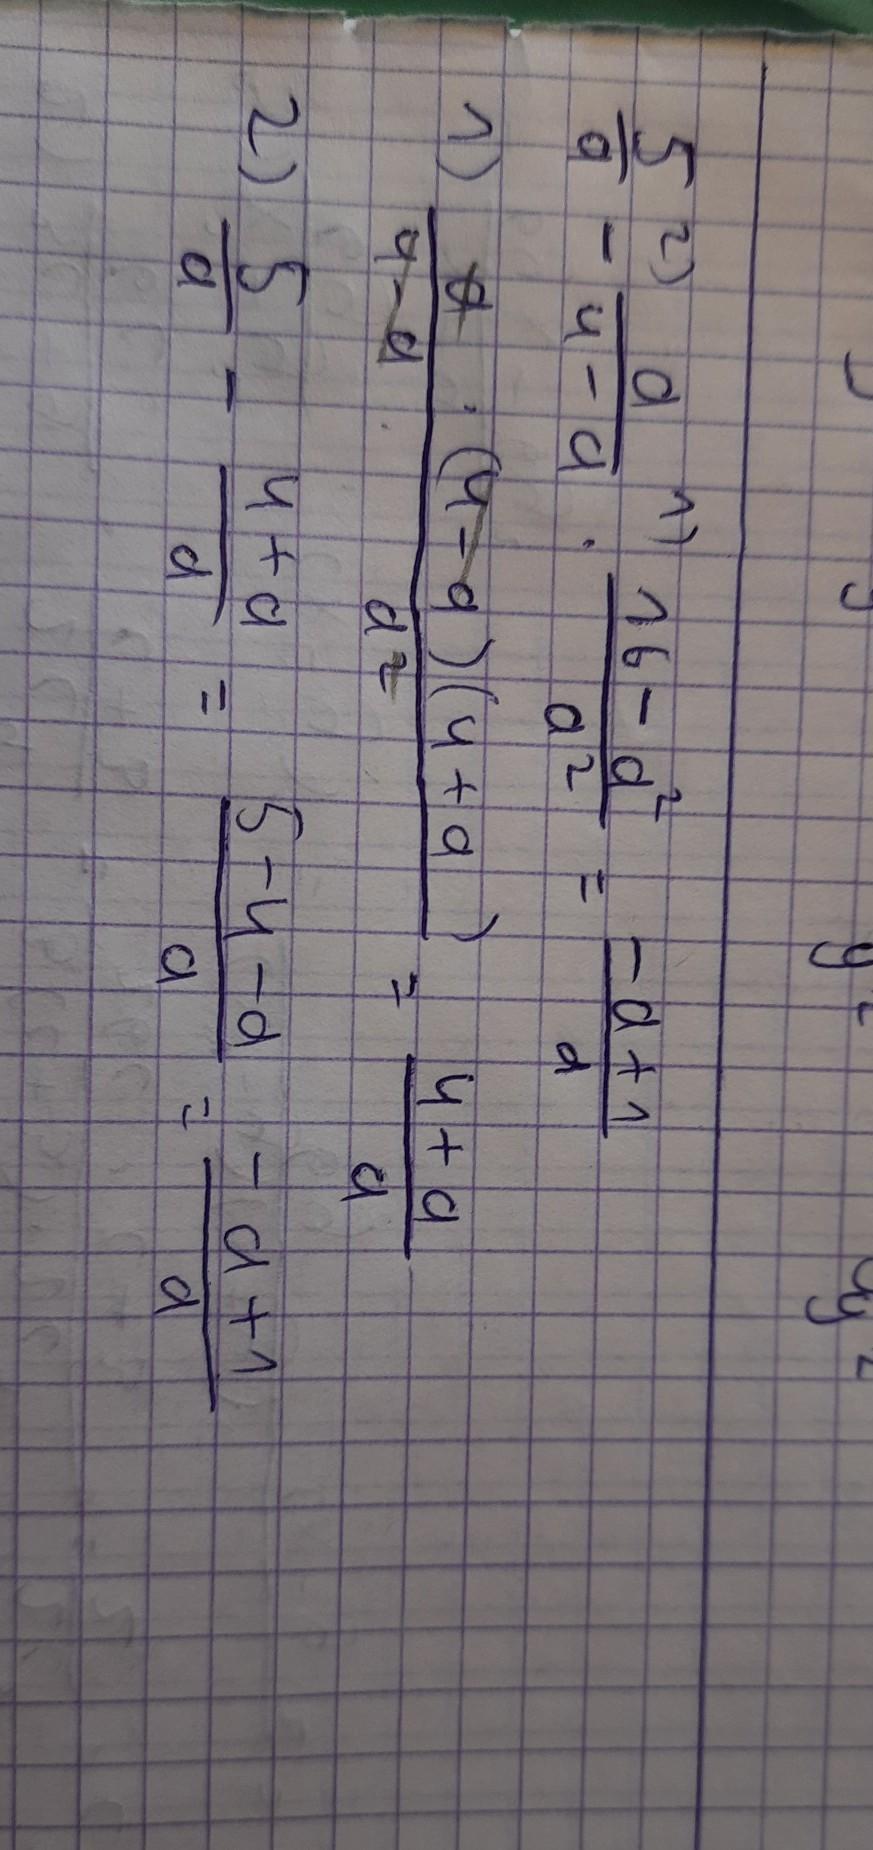 5/a - a/(4-a) · (16-a²)/a² = (-a+1)/a
1) a·(4-a)(4+a)/((4-a)·a²) = (4+a)/a
2) 5/a - (4+a)/a = (5-4-a)/a = (-a+1)/a